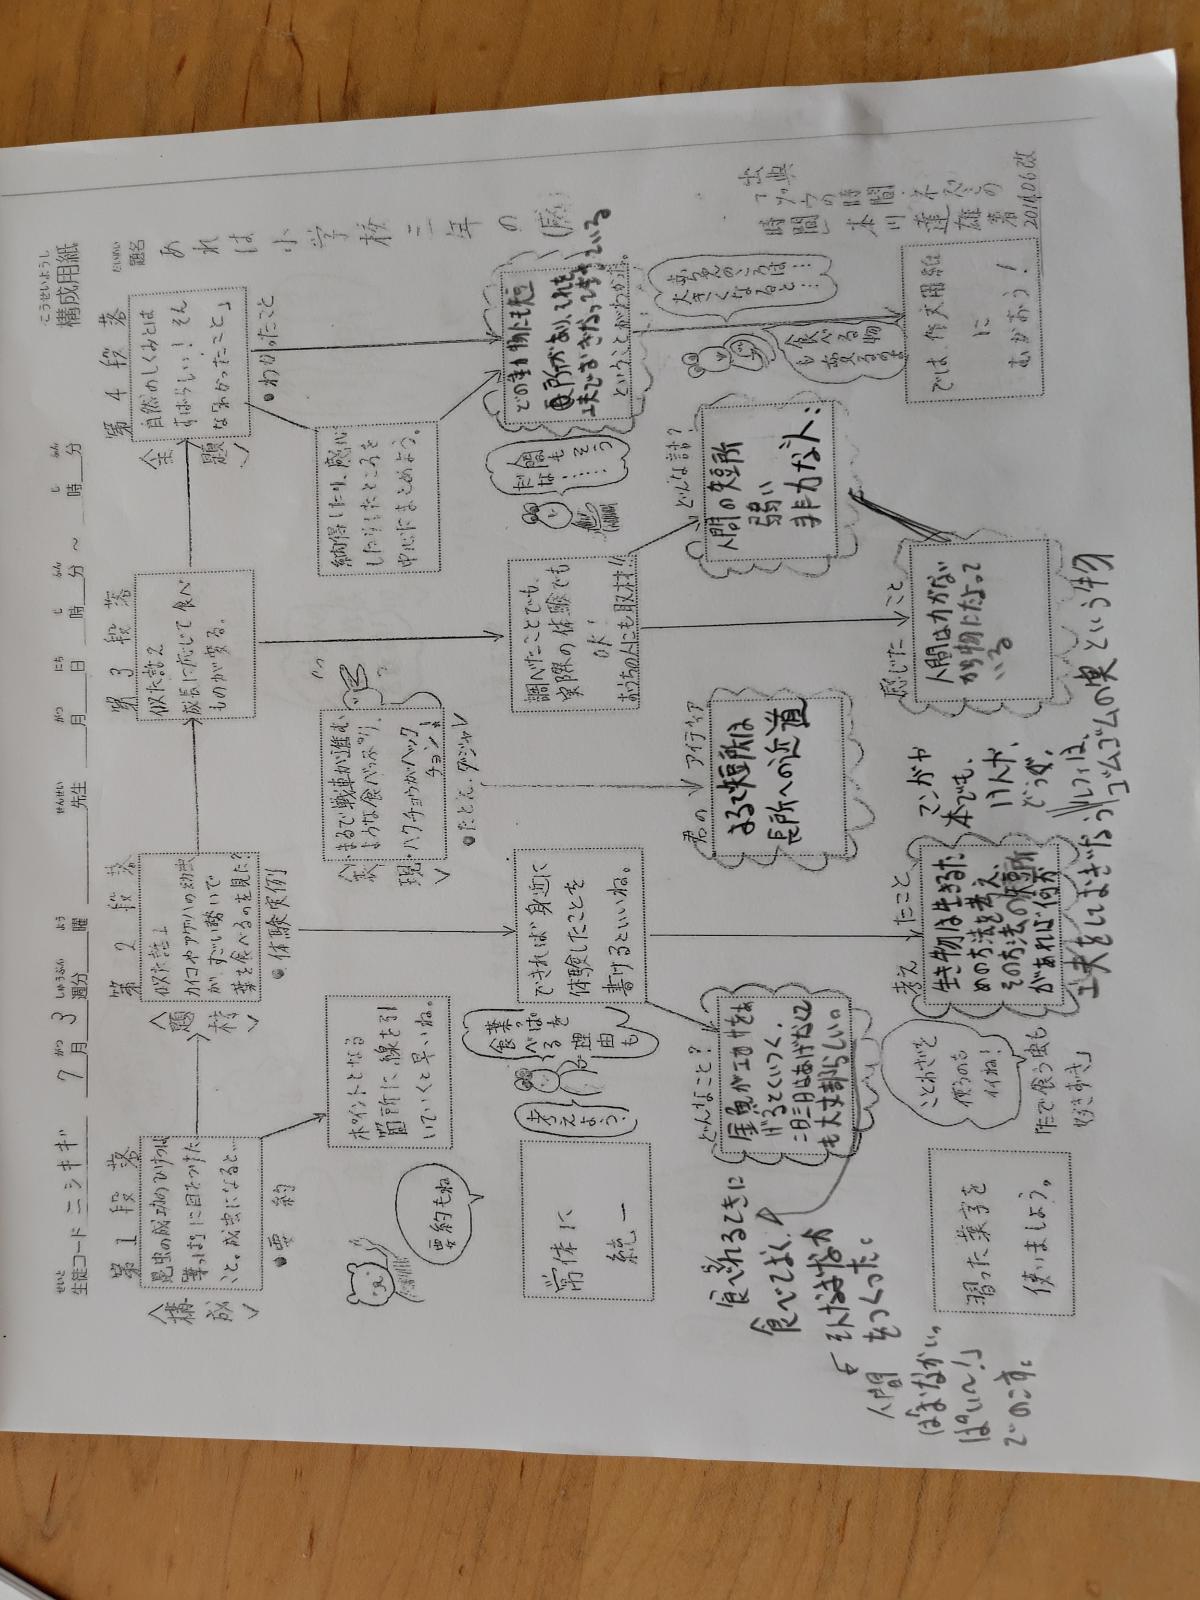 こうせいようし
構成用紙
せいと
生徒コード ニシキギ 7月 がつ 3週分 しゅうぶん 曜 よう 先生 せんせい 月 がつ 日 にち 時 じ 分 ふん ～ 時 じ 分 ふん
だいめい
題名
あれは小学校三年の
第1段落
第2段落
第3段落
第4段落
＜構成＞
昆虫の成功のひけつは
葉っぱに目をつけた
こと。成虫になると…
●要約
＜題材＞
似た話1
カイコやアゲハの幼虫
が、すごい勢いで
葉を食べるのを見た?
●体験実例
似た話2
成長に応じて食べ
ものが変る。
＜主題＞
自然のしくみとは
すばらしい！そん
な「わかったこと」
●わかったこと
要約もね
ポイントとなる
箇所に線を引
いていくと早いね。
＜表現＞
・まるで戦車が進む
ような食べっぷり。
・ハクチョウがハック
チョン！
●たとえ、ダジャレ
納得したり、感心
したりしたところを
中心にまとめよう。
常体に
統一
考えよう？
葉っぱを
食べる
理由も
できれば身近に
体験したことを
書けるといいね。
調べたことでも、
実際の体験でも
OK！
おうちの人にも取材!!
人間も
……そう
だな
どの動物にも短
所があり、それを
工夫でおぎなって
いる
ということがわかった。
どんなこと？
金魚がエサをあ
げるとくいつく。
二日三日はあげなくて
も大丈夫らしい。
食べれるときに
食べておく。
そんなおなか
をつくった。
人間
「おなかいっ
ぱい～！」
でのこす。
君のアイディア
まるで短所は
長所への近道
どんな話？
人間の短所
弱い
非力な人
大草原のころは…
大きくなると…
食べる物
も変るのよ
出典
「ゾウの時間ネズミの
時間」本川達雄著
2014.06改
習った漢字を
使いましょう。
ことわざを
使うのも
イイね！
「たで食う虫も
好き好き」
考えたこと
生き物は生きるた
めの方法を考え、
その方法の短所
があれば何か
工夫をしておぎなう
マンガや
本でも、
ルフィは、
ゴムゴムの実という物
感じたこと
人間は力がない
から物にたよって
いる
では、作文用紙
に
むかおう！